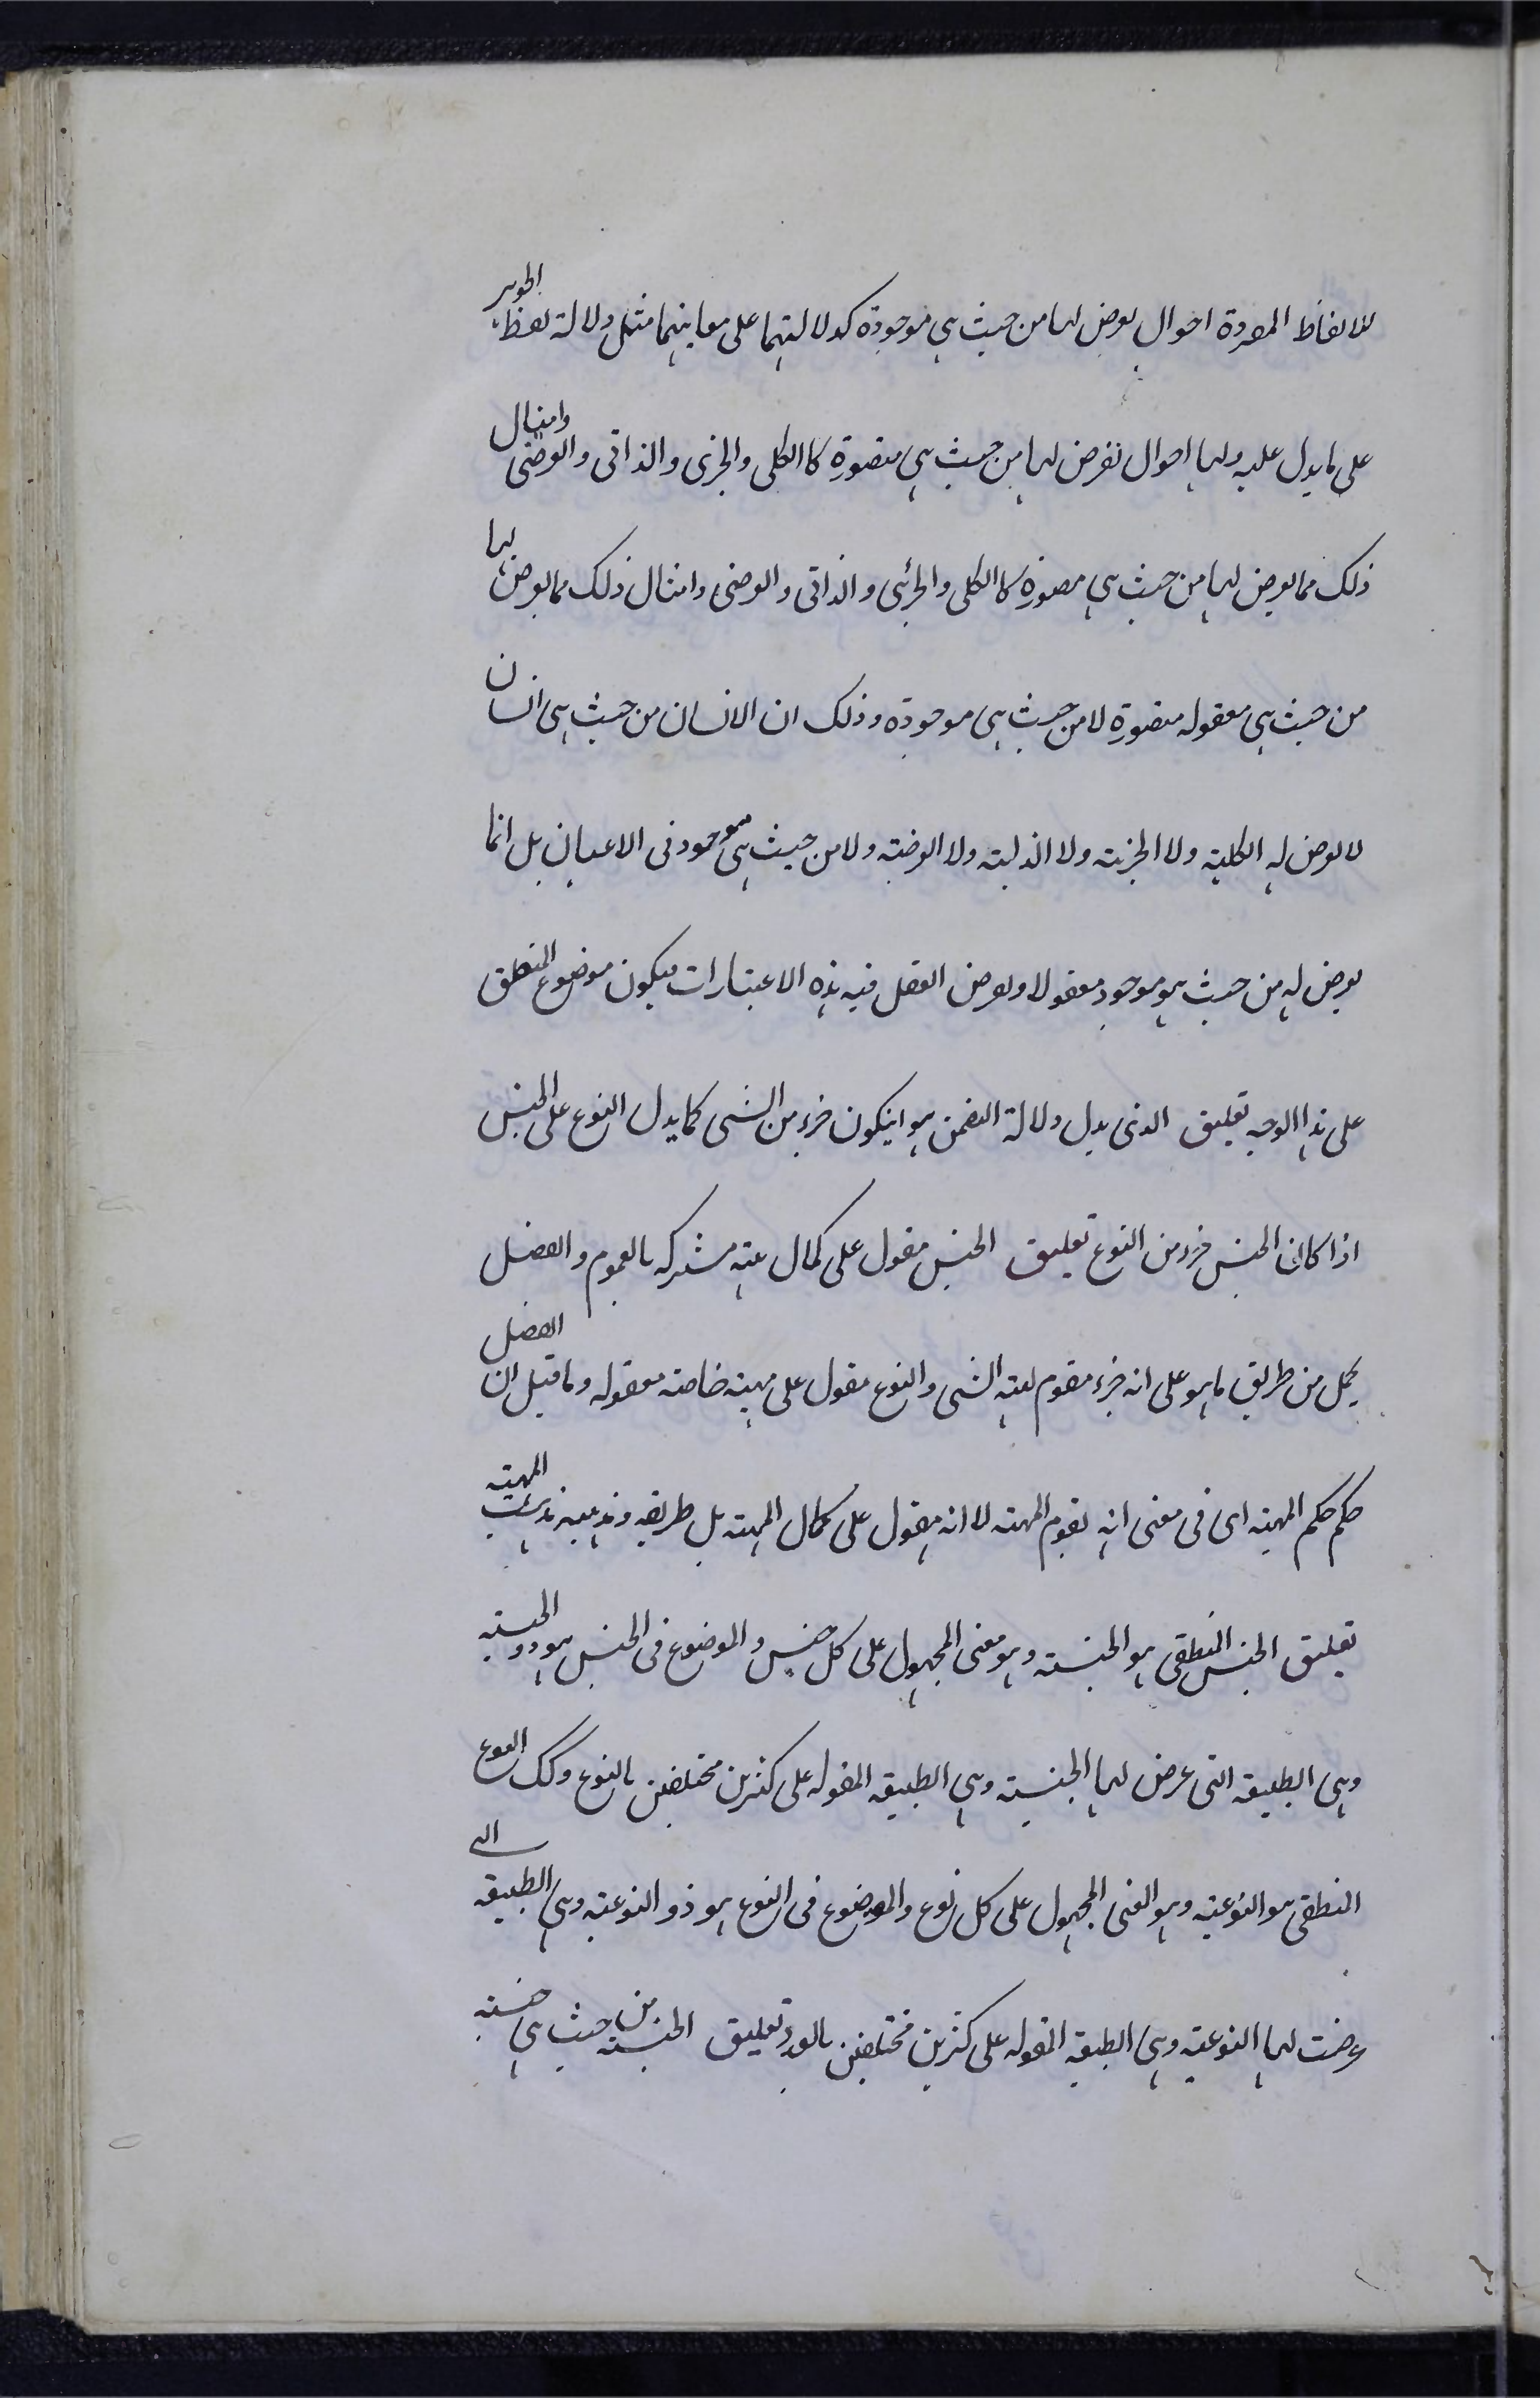 للالفاظ المفردة احوال يعرض لها من حيث هي موجودة كدلالتهما على معانيهما مثل دلالة لفظ الجوهر
على ما يدل عليه ولها احوال تفرض لها من حيث هي متصورة كالكلى والجزى والذاتى والعرضى وامثال
ذلك مما يعرض لها من حيث هي متصورة كالكلى والجزئى والذاتى والعرضى وامثال ذلك مما يعرض لها
من حيث هي معقوله متصورة لا من حيث هي موجودة وذلك ان الانسان من حيث هى انسان
لا يعرض له الكلية ولا الجزئية ولا الذاتية ولا العرضية ولا من حيث هى موجود فى الاعيان بل انما
يعرض له من حيث هو موجود معقولا ويعرض العقل فيه هذه الاعتبارات فيكون موضوع المنطق
على هذا الوجه تعليق الذى يدل دلالة التضمن هو ان يكون جزء من الشى كما يدل النوع على الجنس
اذا كان الجنس جزء من النوع تعليق الجنس مقول على كمال مشتركه بالعموم والفصل
يحمل من طريق ما هو على انه جزء مقوم الشى والنوع مقول على مهية خاصة معقوله وما قيل ان الفصل
حكم حكم المهية اى فى معنى انه يقوم المهية لا انه مقول على كمال المهية بل طريقه المهية
تعليق الجنس المنطقى هو الجنسية وهو معنى المحمول على كل جنس والموضوع فى الجنس هو ذو الجنسية
وهى الطبيعة التى عرض لها الجنسية وهى الطبيعة المقوله على كثيرين مختلفين بالنوع وكك النوع
المنطقى هو النوعية وهو المعنى المحمول على كل نوع والموضوع فى النوع هو ذو النوعية وهى الطبيعة التى
عرضت لها النوعية وهى الطبيعة المقوله على كثيرين مختلفين بالعدد تعليق الجنسية من حيث هى جنسية